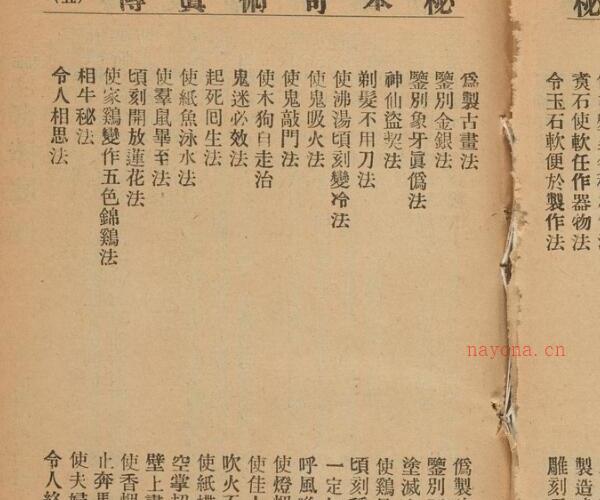 秘
石使軟任作器物法
令玉石軟便於製作法
製造
雕刻
秘本奇術眞傳
(五)
僞製古畫法
鑒別金銀法
鑒別象牙眞僞法
神仙盜契法
剃髮不用刀法
使沸湯頃刻變冷法
使鬼吸火法
使鬼敲門法
使木狗自走治
鬼迷必效法
起死囘生法
使紙魚泳水法
使羣鼠畢至法
頃刻開放蓮花法
使家鷄變作五色錦鷄法
相牛秘法
令人相思法
僞製
鑒別
塗滅
使鷄
頃刻
一定
呼風
使燈
使佳
吹火
使紙
空掌
壁上
使香
止奔馬
使夫
令人終
nayona.cn